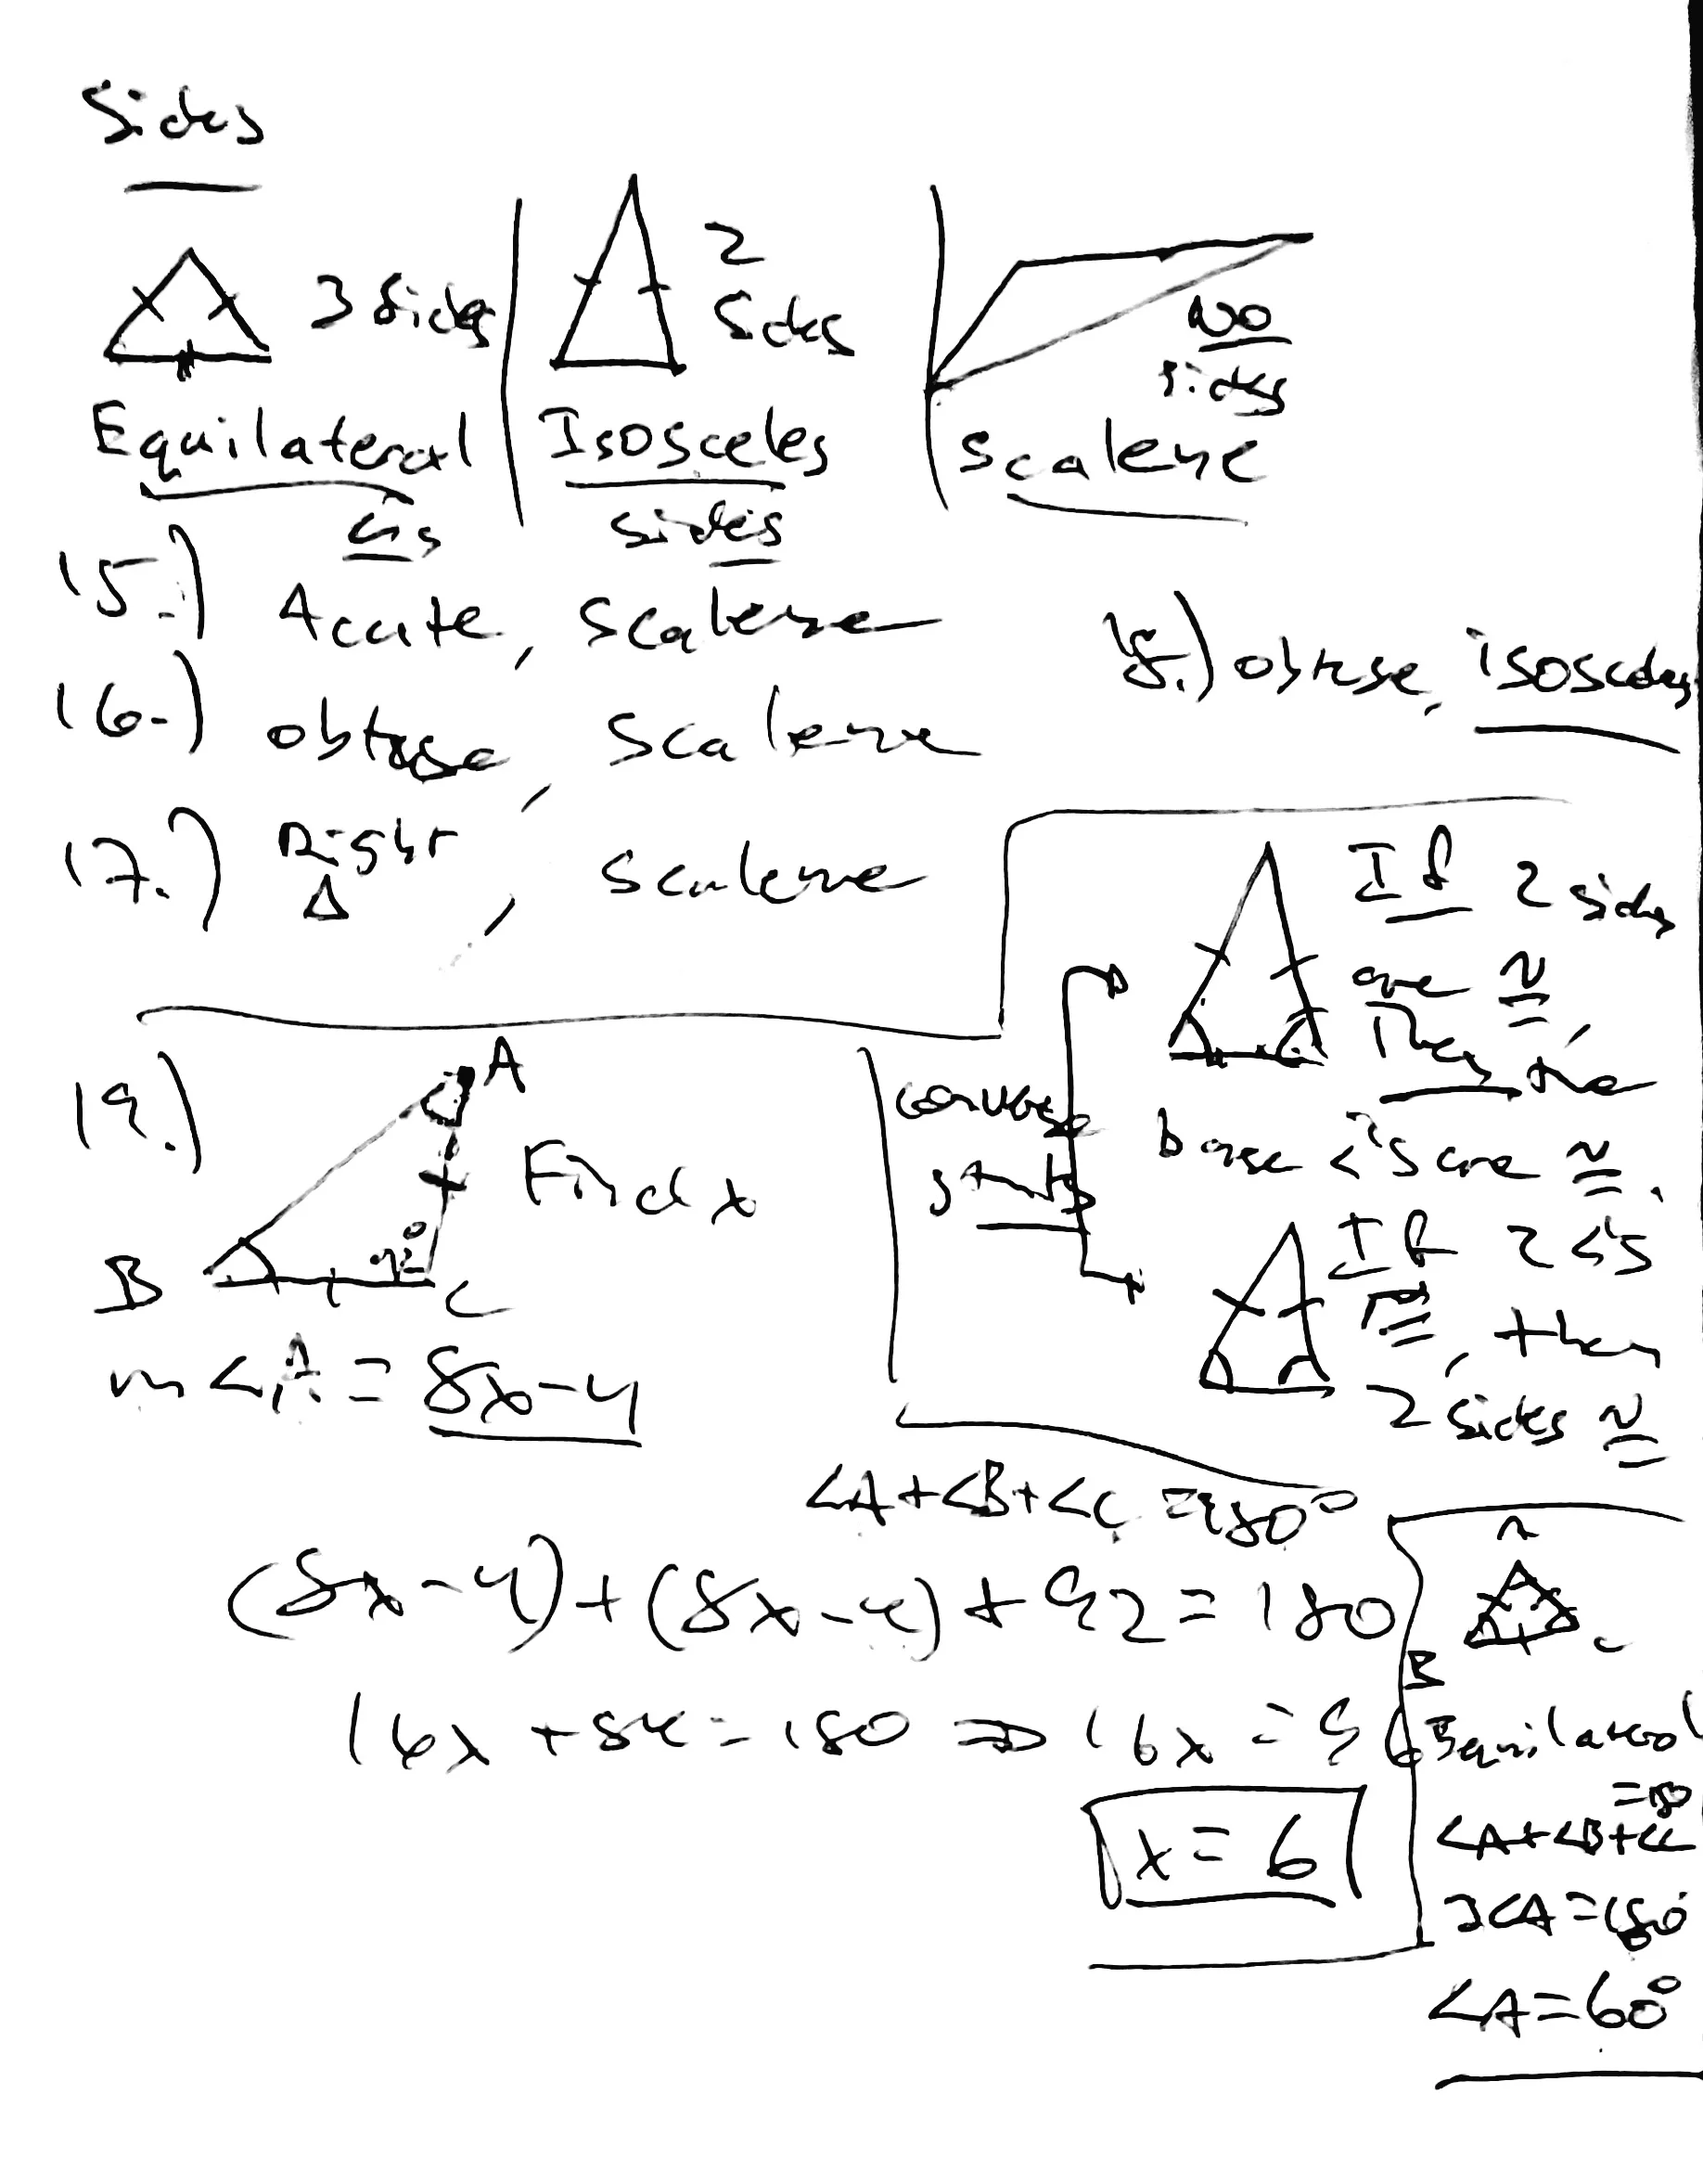 Sides
3 sides
2 sides
No sides
Equilateral
Isosceles
scalene
sides
15.) Acute, scalene
16.) obtuse, scalene
17.) Right Δ, scalene
18.) obtuse, isosceles
If 2 sides
are ≅,
Then the
base <'s are ≅.
converse
If 2 <'s
≅, then
2 sides ≅
19.)
A
Find x
B
C
m<A = 8x-4
<A+<B+<C = 180°
(8x-4)+(8x-4)+92=180
16x+84=180 ⇒ 16x=96
x=6
B
C
Equilateral
=180
<A+<B+<C
3<A=180
<A=60°